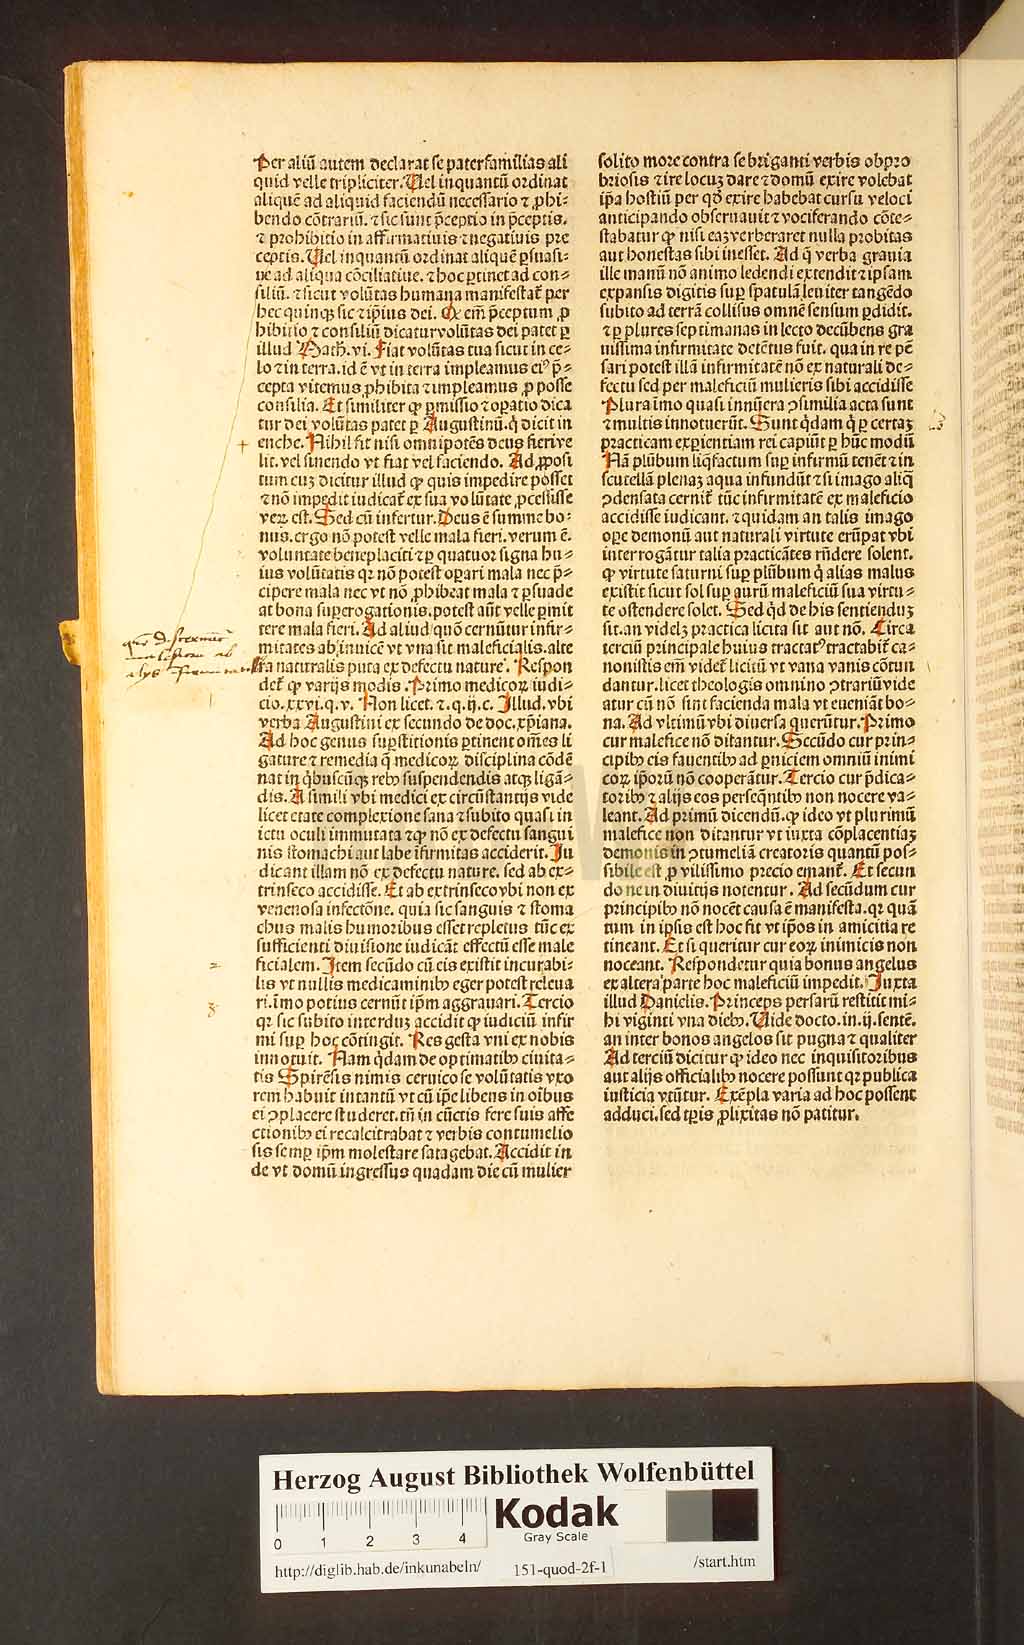 Per aliũ autem declarat se paterfamilias ali
quid velle tripliciter. Uel inquantũ ordinat
aliquẽ ad aliquid faciendũ necessario ⁊ ꝓhi-
bendo cõtrariũ. ⁊ sic sunt p̃ceptio in p̃ceptis.
⁊ prohibitio in affirmatiuis ⁊ negatiuis pre
ceptis. Uel inquantũ ordinat aliquẽ ꝑsuasi-
ue ad aliqua cõciliatiue. ⁊ hoc ꝑtinet ad con-
siliũ. ⁊ sicut volũtas humana manifestat᷑ per
hec quinqꝫ sic ⁊ ip̃ius dei. Qꝫ em̃ p̃ceptum ꝓ
hibitio ⁊ consiliũ dicatur volũtas dei patet ꝑ
illud Math. vi. Fiat volũtas tua sicut in ce-
lo ⁊ in terra. id ẽ vt in terra impleamus eiꝰ p̃-
cepta vitemus ꝓhibita ⁊ impleamus ꝓ posse
consilia. Et similiter ꝙ ꝑmissio ⁊ oꝑatio dica
tur dei volũtas patet ꝑ Augustinũ. q̇ dicit in
enche. Nihil fit nisi omnipotẽs deus fieri ve
lit. vel sinendo vt fiat vel faciendo. Ad ꝓposi
tum cuꝫ dicitur illud ꝙ quis impedire posset
⁊ nõ impedit iudicat᷑ ex sua volũtate ꝓcessisse
veꝝ est. Sed cũ infertur. Deus ẽ summe bo-
nus. ergo nõ potest velle mala fieri. verum ẽ.
voluntate beneplaciti ⁊ ꝑ quatuor signa hu-
ius volũtatis qꝛ nõ potest oꝑari mala nec p̃-
cipere mala nec vt nõ ꝓhibeat mala ⁊ ꝑsuade
at bona suꝑerogationis. potest aũt velle ꝑmit
tere mala fieri. Ad aliud quõ cernũtur infir-
mitates abinuicẽ vt vna sit maleficialis. alte
ra naturalis puta ex defectu nature. Respon
det᷑ ꝙ varijs modis. Primo medicoꝝ iudi-
cio. xxvi. q. v. Non licet. ⁊. q. ij. c. Illud. vbi
verba Augustini ex secundo de doc. xp̃iana.
Ad hoc genus suꝑstitionis ꝑtinent om̃es li
gature ⁊ remedia q̃ medicoꝝ disciplina cõdẽ
nat in q̇buscũqꝫ rebꝰ suspendendis atqꝫ ligã-
dis. A simili vbi medici ex circũstantijs vide
licet etate complexione sana ⁊ subito quasi in
ictu oculi immutata ⁊ ꝙ nõ ex defectu sangui
nis stomachi aut labe ĩfirmitas acciderit. Ju
dicant illam nõ ex defectu nature. sed ab ex-
trinseco accidisse. Et ab extrinseco vbi non ex
venenosa infectõne. quia sic sanguis ⁊ stoma
chus malis humoribus esset repletus tũc ex
sufficienti diuisione iudicãt effectũ esse male
ficialem. Item secũdo cũ eis existit incurabi-
lis vt nullis medicaminibꝰ eger potest releua
ri. ĩmo potius cernũt ip̃m aggrauari. Tercio
qꝛ sic subito interduꝫ accidit ꝙ iudiciũ infir
mi suꝑ hoc cõtingit. Res gesta vni ex nobis
innotuit. Nam q̇dam de optimatibꝰ ciuita-
tis Spirẽsis nimis ceruicose volũtatis vxo
rem habuit in tantũ vt cũ ip̃e libens in oĩbus
ei ꝯplacere studeret. tñ in cũctis fere suis affe
ctionibꝰ ei recalcitrabat ⁊ verbis contumelio
sis semꝑ ip̃m molestare satagebat. Accidit in
de vt domũ ingressus quadam die cũ mulier
solito more contra se briganti verbis obpro
briosis ⁊ ire locuꝫ dare ⁊ domũ exire volebat
ip̃a hostiũ per qd̃ exire habebat cursu veloci
anticipando obseruauit ⁊ vociferando cõte-
stabatur ꝙ nisi eaꝫ verberaret nulla probitas
aut honestas sibi inesset. Ad q̃ verba grauia
ille manũ nõ animo ledendi extendit ⁊ ipsam
expansis digitis suꝑ spatulã leniter tangẽdo
subito ad terrã collisus omnẽ sensum ꝑdidit.
⁊ ꝑ plures septimanas in lecto decũbens gra
uissima infirmitate detẽtus fuit. qua in re pẽ
sari potest illã infirmitatẽ nõ ex naturali de-
fectu sed per maleficiũ mulieris sibi accidisse
Plura ĩmo quasi innũera ꝯsimilia acta sunt
⁊ multis innotuerũt. Sunt q̇dam q̇ ꝑ certaꝫ
practicam exꝑientiam rei capiũt ꝑ hũc modũ
Nã plũbum liq̃factum suꝑ infirmũ tenẽt ⁊ in
scutellã plenaꝫ aqua infundũt ⁊ si imago aliq̃
ꝯdensata cernit᷑ tũc infirmitatẽ ex maleficio
accidisse iudicant. ⁊ quidam an talis imago
oꝑe demonũ aut naturali virtute erũpat vbi
interrogãtur talia practicãtes rñdere solent.
ꝙ virtute saturni suꝑ plũbum q̇ alias malus
existit sicut sol suꝑ aurũ maleficiũ sua virtu-
te ostendere solet. Sed qd̃ de his sentienduꝫ
sit. an videlꝫ practica licita sit aut nõ. Circa
terciũ principale huius tractatꝰ tractabit᷑ ca-
nonistis em̃ videt᷑ licitũ vt vana vanis cõtun
dantur. licet theologis omnino ꝯtrariũ vide
atur cũ nõ sint facienda mala vt eueniãt bo-
na. Ad vltimũ vbi diuersa querũtur. Primo
cur malefice nõ ditantur. Secũdo cur prin-
cipibꝰ eis fauentibꝰ ad ꝑniciem omniũ inimi
coꝝ ip̃orũ nõ cooperãtur. Tercio cur p̃dica-
toribꝰ ⁊ alijs eos perseq̃ntibꝰ non nocere va-
leant. Ad primũ dicendũ. ꝙ ideo vt plurimũ
malefice non ditantur vt iuxta cõplacentiaꝫ
demonis in ꝯtumeliã creatoris quantũ pos-
sibile est ꝓ vilissimo precio emant᷑. Et secun
do ne in diuitijs notentur. Ad secũdum cur
principibꝰ nõ nocẽt causa ẽ manifesta. qꝛ quã
tum in ipsis est hoc fit vt ip̃os in amicitia re
tineant. Et si queritur cur eoꝝ inimicis non
noceant. Respondetur quia bonus angelus
ex altera parte hoc maleficiũ impedit. Juxta
illud Danielis. Princeps persarũ restitit mi-
hi viginti vna diebꝰ. Uide docto. in. ij. sentẽ.
an inter bonos angelos sit pugna ⁊ qualiter
Ad terciũ dicitur ꝙ ideo nec inquisitoribus
aut alijs officialibꝰ nocere possunt qꝛ publica
iusticia vtũtur. Exẽpla varia ad hoc possent
adduci. sed tp̃is ꝓlixitas nõ patitur.
Herzog August Bibliothek Wolfenbüttel
0 1 2 3 4
Kodak
Gray Scale
http://diglib.hab.de/inkunabeln/
151-quod-2f-1
/start.htm